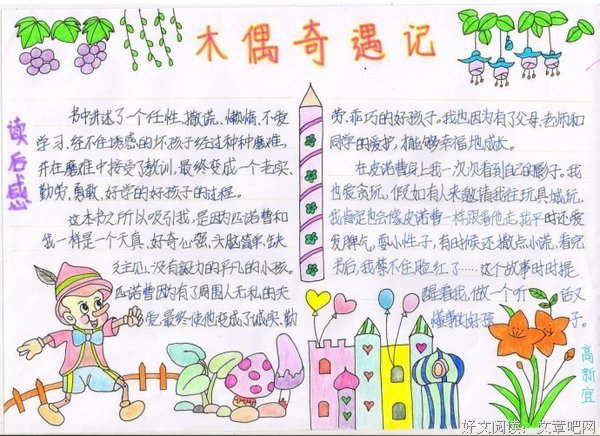 木偶奇遇记
读后感
书中讲述了一个任性、撒谎、懒惰、不爱
学习、经不住诱惑的坏孩子经过种种磨难,
并在磨难中接受了教训,最终变成一个老实、
勤劳、勇敢、好学的好孩子的过程。
这本书之所以吸引我,是因匹诺曹和
我一样是一个天真、好奇心强、头脑简单、缺
乏主见、没有毅力的平凡的小孩。
匹诺曹因为有了周围人无私的关
爱,最终使他变成了诚实、勤
劳、乖巧的好孩子。我也因为有了父母、老师和
同学的爱护,才能够幸福地成长。
在皮诺曹身上我一次次看到自己的影子。我
也爱贪玩,假如有人来邀请我往玩具城玩,
我肯定也会像皮诺曹一样跟着他走。我平时还爱
发脾气,耍小性子,有时候还撒点小谎,看完
书后,我禁不住脸红了……这个故事时时提
醒着我,做一个听话又
懂事的好孩子。
高新宜
好文阅读:文章吧网